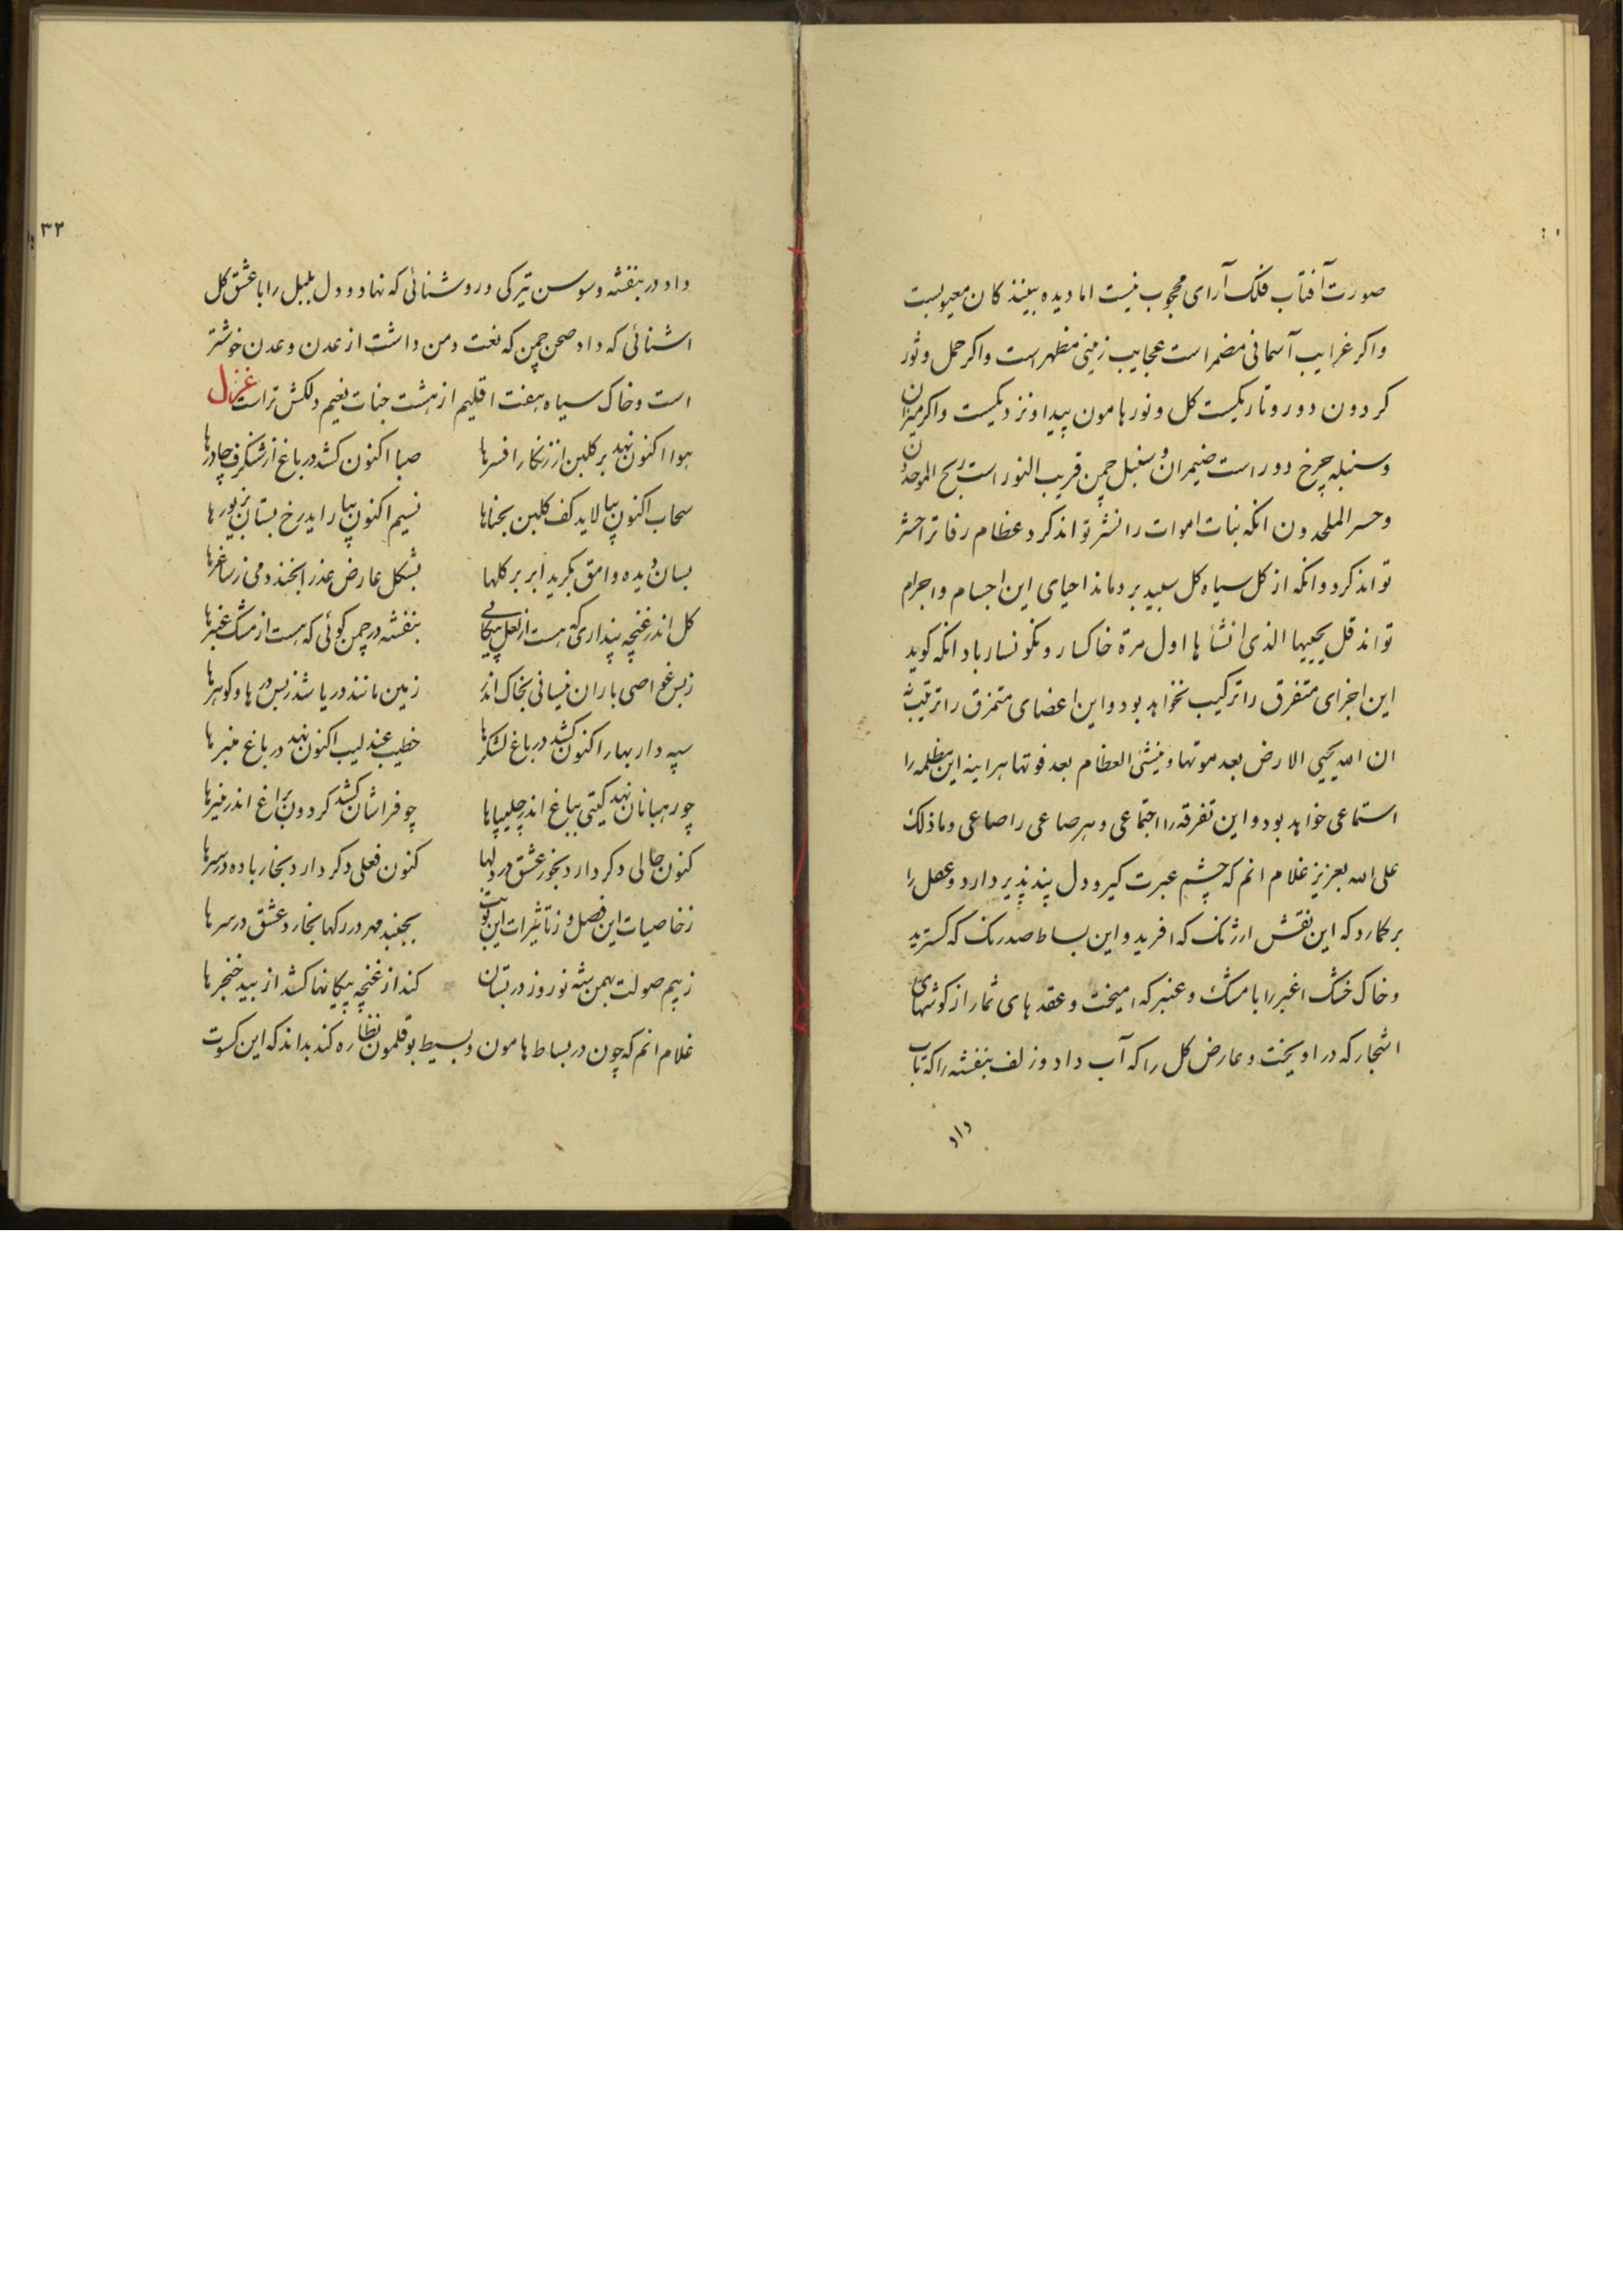 صورت آفتاب فلک آرای محجوب نیست اما دیده بینندکان معیوبست
واکر غرایب آسمانی مضمر است عجایب زمینی مظهر است واکر حمل و ثور
کردون دور و تاریکیست کل و نور هامون پیدا و نزدیکیست واکر میزان
وسنبله چرخ دور است ضیمران و سنبل چمن قریب النور است ربح الموحدون
وخسر الملحدون انکه بنات اموات را نشر تواند کرد عظام رفات را حشر
تواند کرد وانکه از کل سیاه کل سپید بردماند احیای این اجسام واجرام
تواند قل یحییها الذی انشأها اول مرة خاکسار و نکونسار باد انکه کوید
این اجزای متفرق را ترکیب نخواهد بود واین اعضای متمزق را ترتیب
ان الله یحیی الارض بعد موتها وینشئ العظام بعد فوتها هراینه این مظلمه را
استماعی خواهد بود و این تفرقه را اجتماعی و هر صاعی را صاعی وما ذلک
علی الله بعزیز غلام انم که چشم عبرت کیر و دل پند پذیر دارد وعقل را
برکمارد که این نقش ارژنک که افرید و این بساط صدرنک که کسترید
وخاک خشک اغبر را با مشک و عنبر که امیخت و عقدهای ثمار از کوشهای
اشجار که دراویخت و عارض کل را که آب داد و زلف بنفشه را که تاب
داد
۳۲
داد در بنفشه وسوسن تیرکی و روشنائی که نهاد و دل بلبل را با عشق کل
اشنائی که داد صحن چمن که نعت دمن داشت از عدن وعدن خوشتر
است وخاک سیاه هفت اقلیم از هشت جنات نعیم دلکش تر است غزل
هوا اکنون نهد بر کلبن از زنکار افسرها صبا اکنون کشد در باغ از شنکرف چادرها
سحاب اکنون بیالاید کف کلبن بحناها نسیم اکنون بیاراید رخ بستان بزیورها
بسان دیده وامق بکرید ابر بر کلها بشکل عارض عذرا بخندد می ز ساغرها
کل اندر غنچه پنداری که هست از لعل پیکانی بنفشه در چمن کوئی که هست از مشک عنبرها
زبس غواصی باران نیسانی بخاک اندر زمین مانند دریا شد زبس درها و کوهرها
سپه دار بهار اکنون کشد در باغ لشکرها خطیب عندلیب اکنون نهد در باغ منبرها
چو رهبانان نهد کیتی بباغ اندر چلیپاها چو فراشان کشد کردون براغ اندر منیرها
کنون حالی دکر دارد بخور عشق در دلها کنون فعلی دکر دارد بخار باده در سرها
زخاصیات این فصل و زتأثیرات این نوبت بجنبد مهر در رکها بخارد عشق در سرها
زبیم صولت بهمن شه نوروز در بستان کند از غنچه پیکانها کشد از بید خنجرها
غلام انم که چون در بساط هامون و بسیط بوقلمون نظاره کند بداند که این کسوت